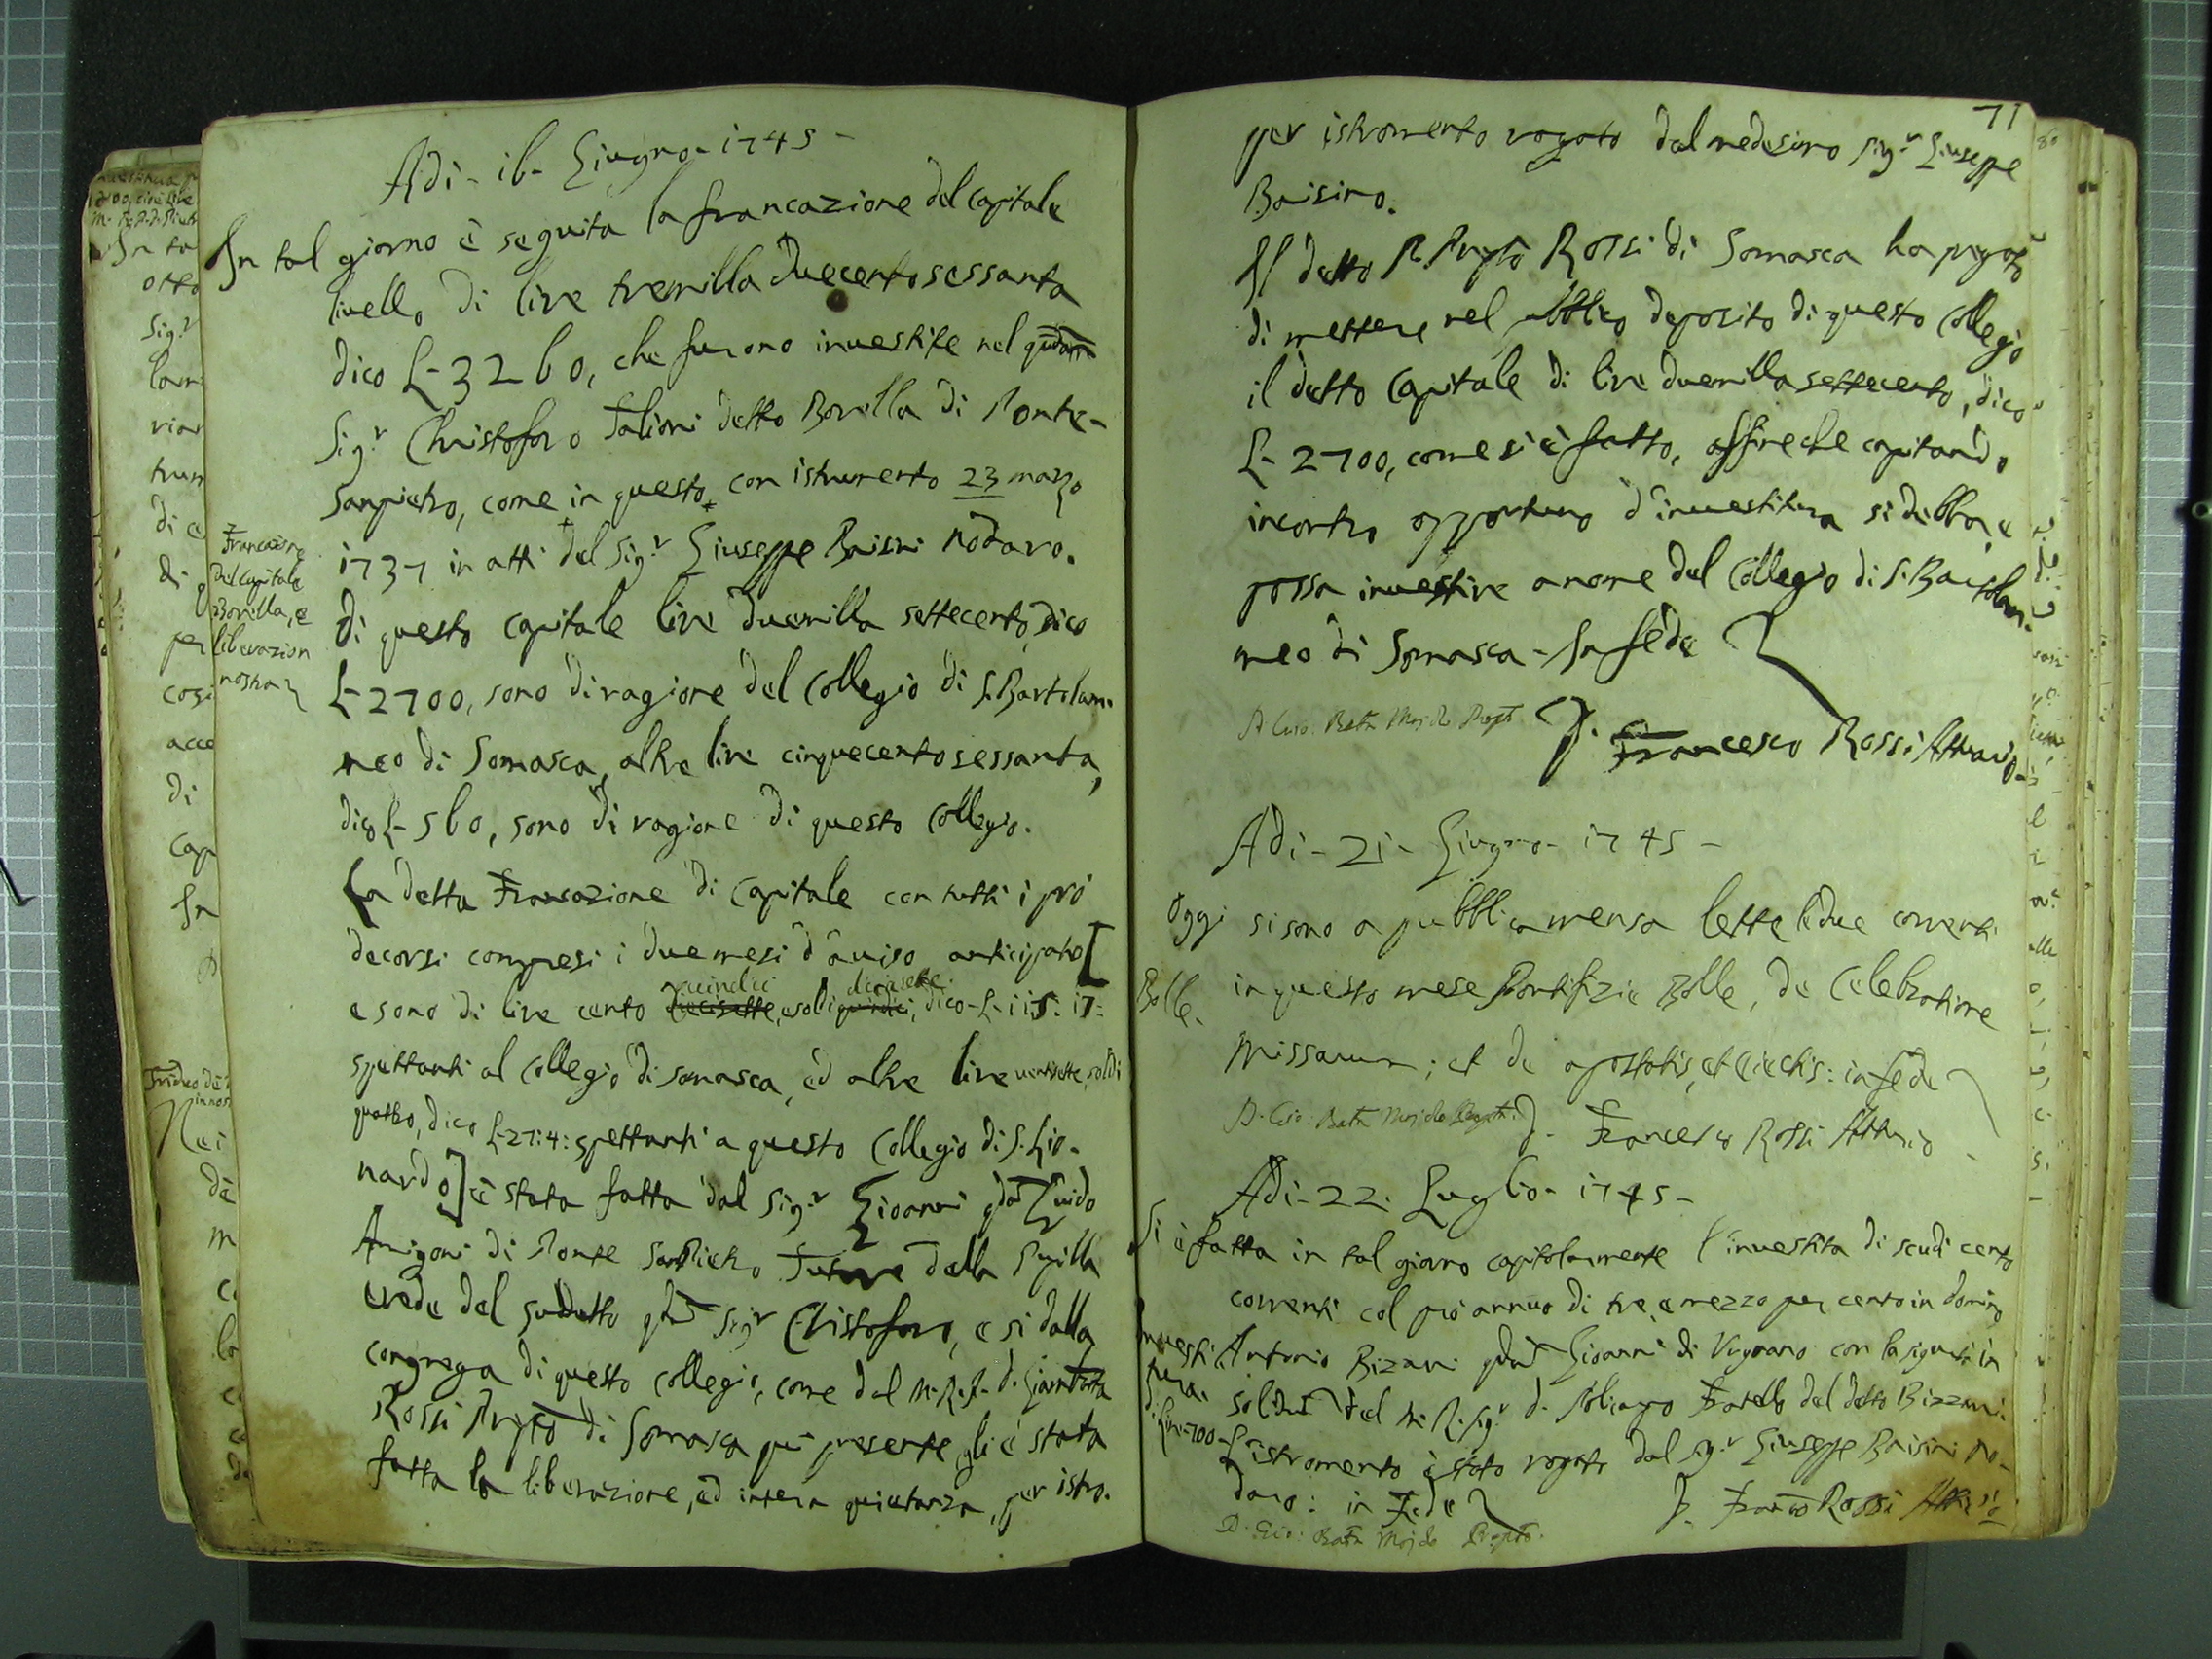 Adi - 16 - Giugno - 1745 -
In tal giorno è seguita la francazione del capitale
livello di lire tremilla duecentosessanta
dico L - 3260, che furono investite nel qudam
Sig.r Christoforo Falioni detto Bovilla di Ponte-
sanpietro, come in questo, con istrumento 23 marzo
1737 in atti del Sig.r Giuseppe Baisini nodaro.
Di questo capitale lire duemilla settecento, dico
L - 2700, sono di ragione del Collegio di S. Bartolam-
meo di Somasca, altre lire cinquecentosessanta,
dico L - 560, sono di ragione di questo Collegio.
La detta Francazione di capitale con tutti i prò
decorsi compresi i due mesi d'auiso anticipato [
quindici diecisette
e sono di lire cento diecisette, e soldi quindici, dico - L - 115: 17:
spettanti al Collegio di Somasca, ed altre lire ventisette, soldi
quatro, dico L - 27: 4: spettanti a questo Collegio di S. Lio-
nardo] è stata fatta dal Sig.r Gioanni qda Guido
Arrigoni di Ponte San Pietro Tutore della Pupilla
erede del sudetto qda Sig.r Christoforo, e si dalla
congrega di questo collegio, come dal M. R. P. D. Giambatta
Rossi Prepto di Somasca qui presente, gli è stata
fatta la liberazione, ed intera quietanza, per istro-
Francazione
del capitale
Bovilla, e
liberazion
nostra
71
per istromento rogato dal medesimo Sig.r Giuseppe
Baisino.
Il detto P. Prepto Rossi di Somasca ha pregato
di mettere nel pubblico deposito di questo Collegio
il detto capitale di lire duemilla settecento, dico
L - 2700, come si è fatto, affine che capitando
incontro opportuno d'investitura si debba, e
possa investire a nome del Collegio di S. Bartolam-
meo di Somasca - In fede
D. Gio: Batta Mojolo Prepto
P. Francesco Rossi Attuario
Adi - 21 - Giugno - 1745 -
Oggi si sono a pubblica mensa lette le due correnti
in questo mese Pontifizie Bolle, de Celebratione
Missarum; et de apostatis, et eiectis: in fede
Bolle.
D. Gio: Batta Mojolo Prepto
P. Francesco Rossi Attuario
Adi - 22. Luglio - 1745 -
Si è fatta in tal giorno capitolarmente l'investita di scudi cento
correnti col prò annuo di tre, e mezzo per cento in domino
Antonio Bizari qda Gioanni di Vignano con la sigurtà in
solidu del M. R. Sig.r D. Policarpo Fratello del detto Bizzari.
L'istromento è stato rogato dal Sig.r Giuseppe Baisini no-
daro: in Fede
Investi
tura
di lire 700 -
P. Franco Rossi Attrio
D. Gio: Batta Mojolo Prepto.